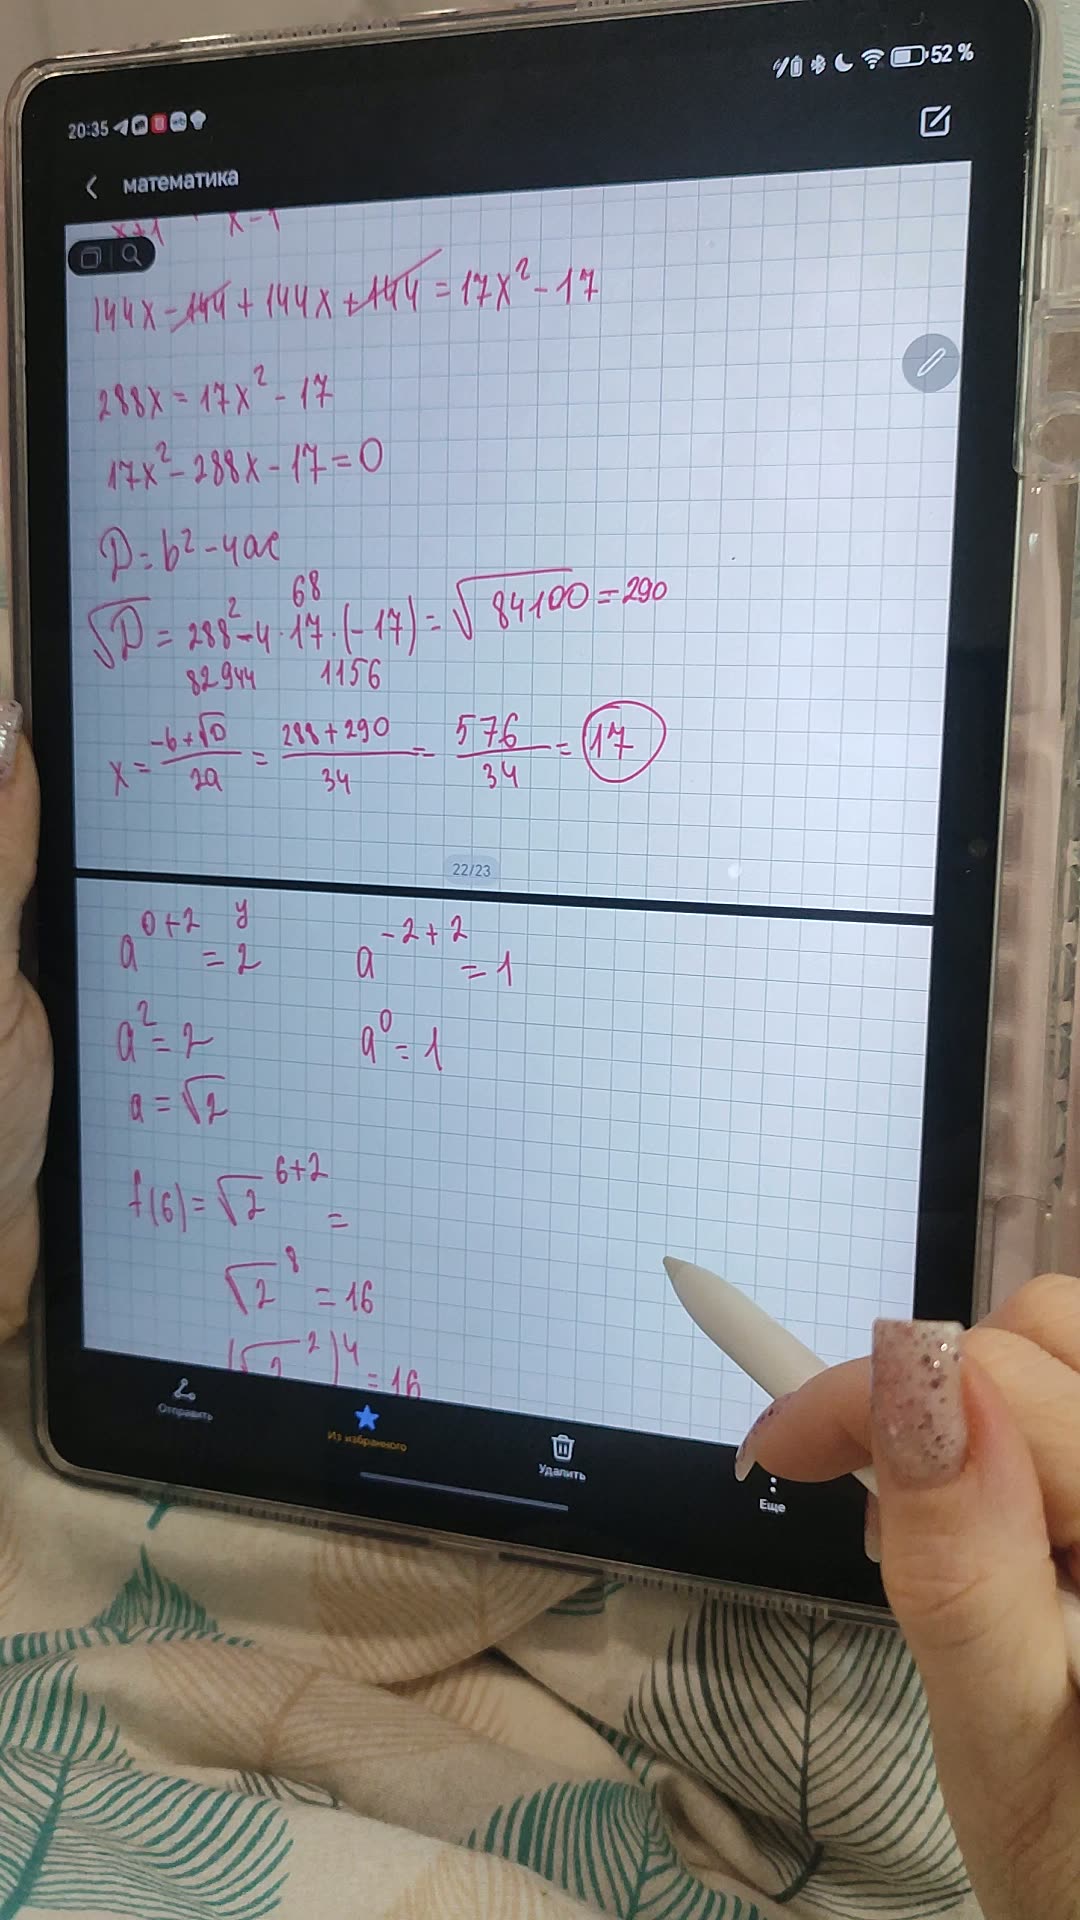 20:35 52 %
математика
x+1 x-1
144x-144+144x+144=17x²-17
288x=17x²-17
17x²-288x-17=0
D=b²-4ac
68
√D=288²-4·17·(-17)=√84100=290
82944 1156
x=(-b+√D)/2a=(288+290)/34=576/34=17
22/23
y
a^(0+2)=2 a^(-2+2)=1
a²=2 a⁰=1
a=√2
f(6)=√2^(6+2)=
√2⁸=16
(√2²)⁴=16
Отправить Из избранного Удалить Еще